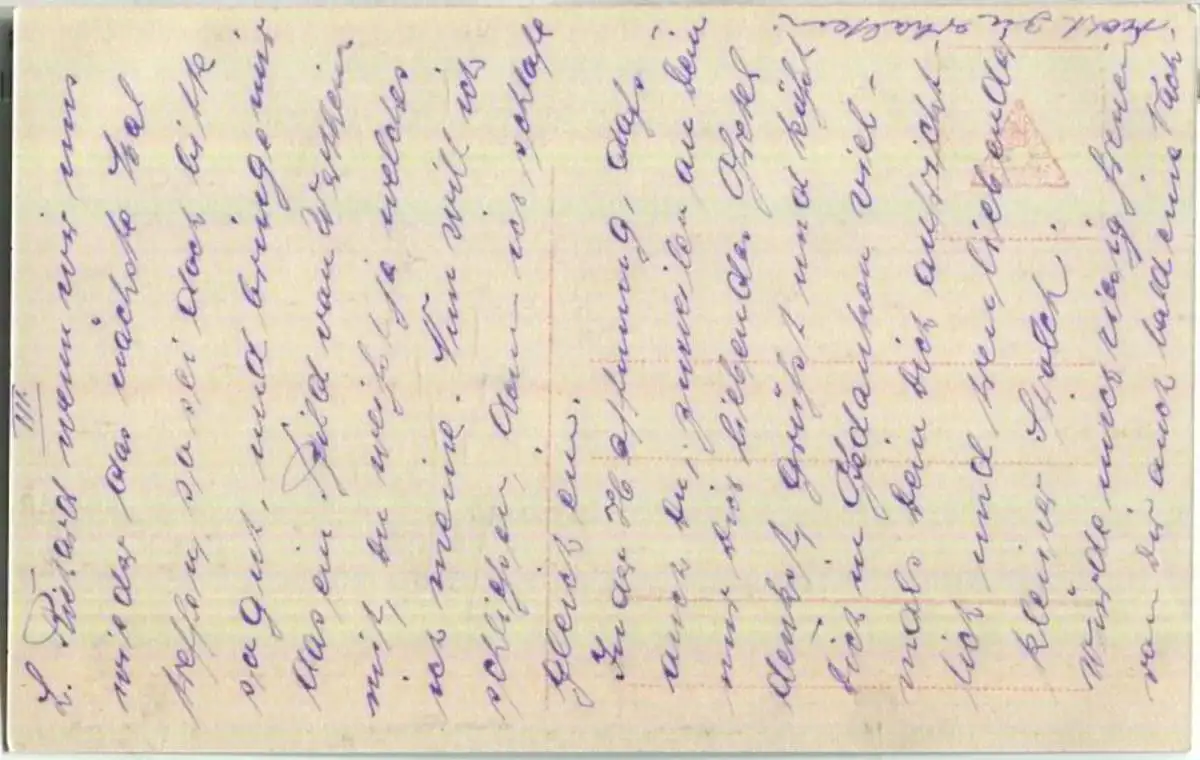 III.
L. Richard wenn wir uns
wieder das nächste Mal
treffen, so sei doch bitte
so gut, und bringe mir
das ein Bild von
mit, du weißt ja welches
ich meine. Nun will ich
schließen, denn ich schlafe
gleich ein.
In der Hoffnung, daß
auch du, zuweilen an dein
nur dich liebendes
denkst, grüßt und küßt
dich in Gedanken viel-
mals dein dich aufricht-
lich und treu liebender
kleiner Strolch.
Würde mich riesig freuen
von dir auch bald eine Nach-
richt zu erhalten.